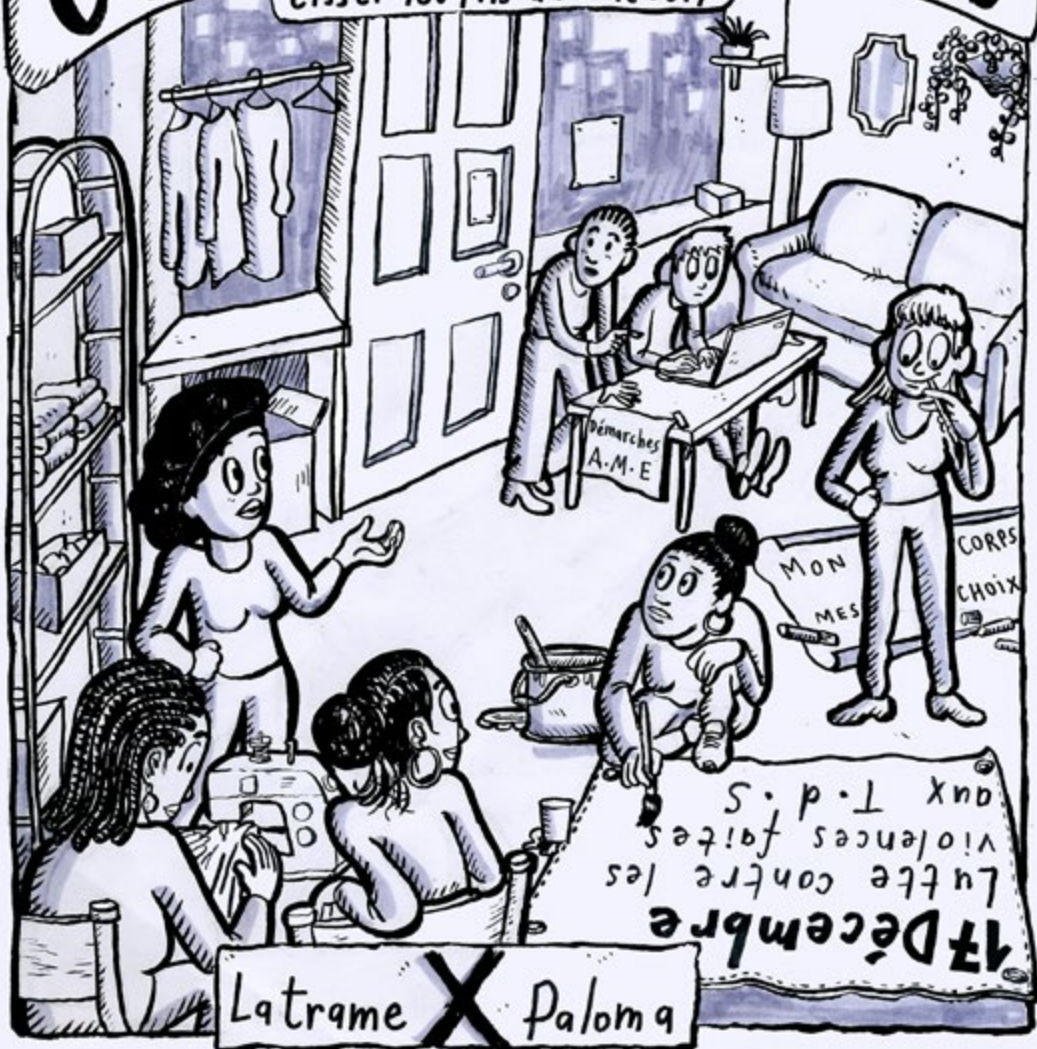 Démarches
A.M.E
MON CORPS
MES CHOIX
17 Décembre
Lutte contre les
violences faites
aux T.d.S
La trame X Paloma